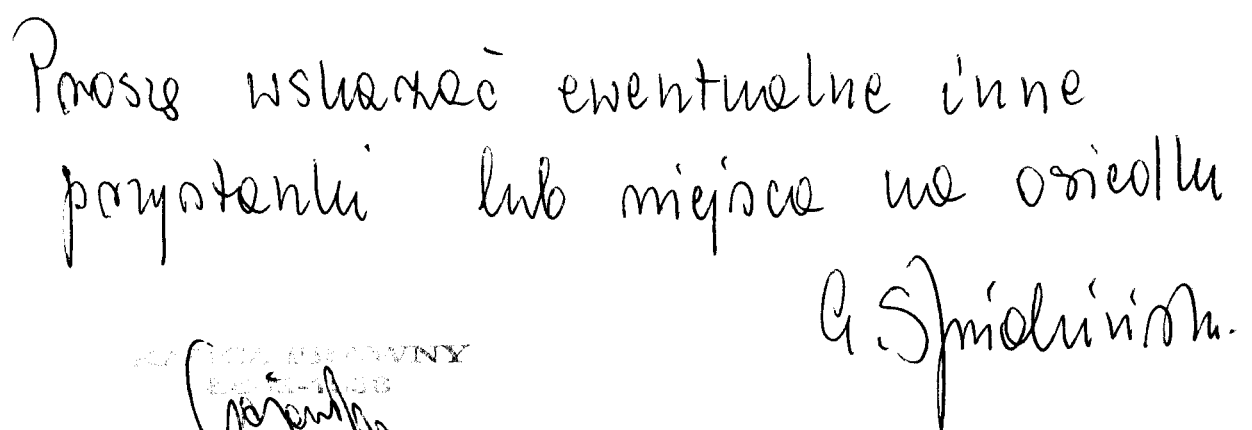 Proszę wskazać ewentualne inne
przystanki lub miejsca na osiedlu
G.
RADCA PRAWNY